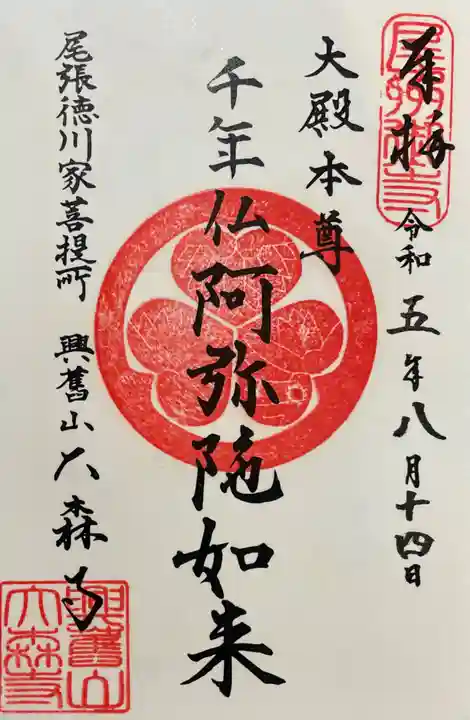 奉拝 令和五年八月十四日
大殿本尊
千年仏阿弥陀如来
尾張徳川家菩提所 興舊山大森寺
興舊山
大森寺